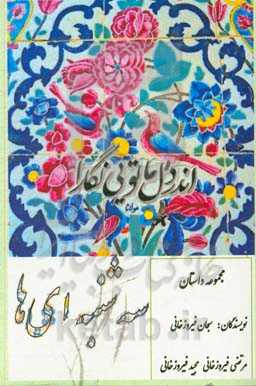 اندر دل ما تویی نگارا
مولانا
سه شنبه ای ها
مجموعه داستان
نویسندگان: سبحان فیروزخانی
مرتضی فیروزخانی مجید فیروزخانی
ketab.ir